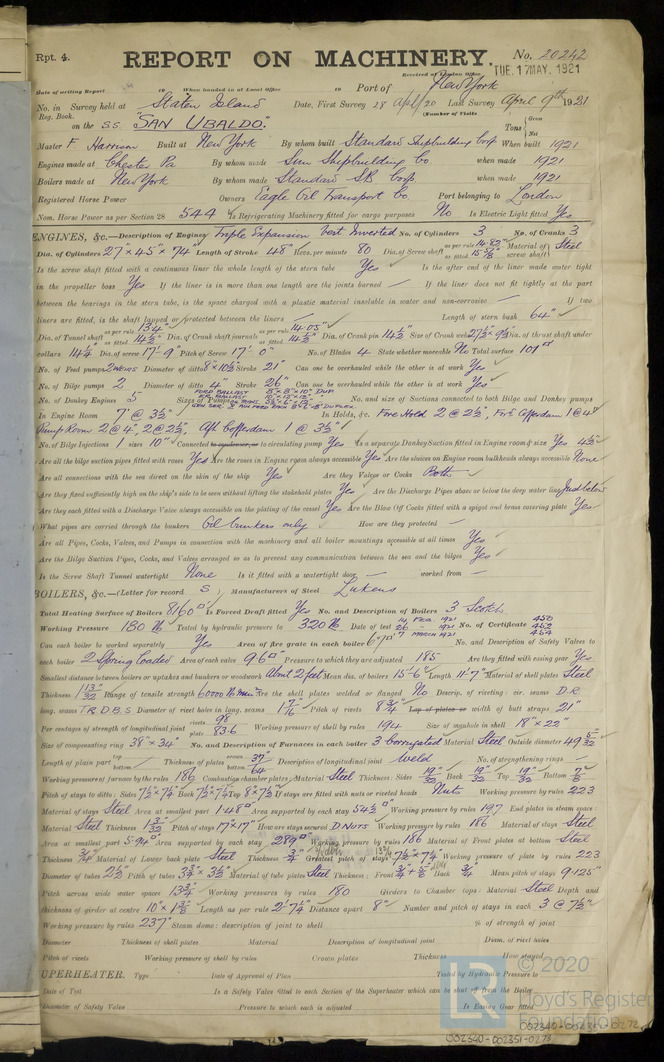 Rpt. 4. REPORT ON MACHINERY. No. 20242
Received at London Office TUE. 17 MAY, 1921
Date of writing Report 19 When handed in at Local Office 19 Port of New York
No. in Survey held at Staten Island Date, First Survey 28 Apl/20 Last Survey April 9th 1921
Reg. Book. (Number of Visits
on the S.S. "SAN UBALDO." Tons Gross Net
Master F Harrison Built at New York By whom built Standard Shipbuilding Corp When built 1921
Engines made at Chester Pa By whom made Sun Shipbuilding Co when made 1921
Boilers made at New York By whom made Standard SB Corp when made 1921
Registered Horse Power Owners Eagle Oil Transport Co Port belonging to London
Nom. Horse Power as per Section 28 544 Is Refrigerating Machinery fitted for cargo purposes No Is Electric Light fitted Yes
ENGINES, &c.—Description of Engines Triple Expansion Vert Inverted No. of Cylinders 3 No. of Cranks 3
Dia. of Cylinders 27" x 45" x 74" Length of Stroke 48" Revs. per minute 80 Dia. of Screw shaft as per rule 14.82" as fitted 15 5/8" Material of screw shaft Steel
Is the screw shaft fitted with a continuous liner the whole length of the stern tube Yes Is the after end of the liner made water tight
in the propeller boss Yes If the liner is in more than one length are the joints burned — If the liner does not fit tightly at the part
between the bearings in the stern tube, is the space charged with a plastic material insoluble in water and non-corrosive — If two
liners are fitted, is the shaft lapped or protected between the liners — Length of stern bush 64"
Dia. of Tunnel shaft as per rule 13.4" as fitted 14 1/2" Dia. of Crank shaft journals as per rule 14.05" as fitted 14 1/2" Dia. of Crank pin 14 1/2 Size of Crank webs 27 1/2 x 9 1/2 Dia. of thrust shaft under
collars 14 1/4 Dia. of screw 17'-9" Pitch of Screw 17'.0" No. of Blades 4 State whether moveable No Total surface 101
No. of Feed pumps 2 Weirs Diameter of ditto 8" x 10 1/2 Stroke 21" Can one be overhauled while the other is at work Yes
No. of Bilge pumps 2 Diameter of ditto 4" Stroke 26" Can one be overhauled while the other is at work Yes
No. of Donkey Engines 5 Sizes of Pumps No. and size of Suctions connected to both Bilge and Donkey pumps
In Engine Room 7 @ 3 1/2" In Holds, &c. Fore Hold 2 @ 2 1/2", Ford Cofferdam 1 @ 4"
Pump Room 2 @ 4", 2 @ 2 1/2", Aft Cofferdam 1 @ 3 1/2"
No. of Bilge Injections 1 sizes 10" Connected to condenser, or to circulating pump Yes Is a separate Donkey Suction fitted in Engine room & size Yes 4 1/2"
Are all the bilge suction pipes fitted with roses Yes Are the roses in Engine room always accessible Yes Are the sluices on Engine room bulkheads always accessible None
Are all connections with the sea direct on the skin of the ship Yes Are they Valves or Cocks Both
Are they fixed sufficiently high on the ship's side to be seen without lifting the stokehold plates Yes Are the Discharge Pipes above or below the deep water line Just below
Are they each fitted with a Discharge Valve always accessible on the plating of the vessel Yes Are the Blow Off Cocks fitted with a spigot and brass covering plate Yes
What pipes are carried through the bunkers Oil bunkers only How are they protected —
Are all Pipes, Cocks, Valves, and Pumps in connection with the machinery and all boiler mountings accessible at all times Yes
Are the Bilge Suction Pipes, Cocks, and Valves arranged so as to prevent any communication between the sea and the bilges Yes
Is the Screw Shaft Tunnel watertight None Is it fitted with a watertight door — worked from —
BOILERS, &c.—(Letter for record S) Manufacturers of Steel Lukens
Total Heating Surface of Boilers 8160 Is Forced Draft fitted Yes No. and Description of Boilers 3 Scotch
Working Pressure 180 lb Tested by hydraulic pressure to 320 lb Date of test 14 FEB. 1921 26 - 1921 7 MARCH 1921 No. of Certificate
Can each boiler be worked separately Yes Area of fire grate in each boiler 67 No. and Description of Safety Valves to
each boiler 2 Spring loaded Area of each valve 9.6 Pressure to which they are adjusted 185 Are they fitted with easing gear Yes
Smallest distance between boilers or uptakes and bunkers or woodwork About 2 feet Mean dia. of boilers 15'-6" Length 11'-7" Material of shell plates Steel
Thickness 1 13/32 Range of tensile strength 60000 lb min Are the shell plates welded or flanged No Descrip. of riveting: cir. seams D.R.
long. seams T.R.D.B.S Diameter of rivet holes in long. seams 1 7/16 Pitch of rivets 8 3/4 Lap of plates or width of butt straps 21"
Per centages of strength of longitudinal joint rivets 98 plate 83.6 Working pressure of shell by rules 194 Size of manhole in shell 18" x 22"
Size of compensating ring 38" x 34" No. and Description of Furnaces in each boiler 3 corrugated Material Steel Outside diameter 49 5/32
Length of plain part top bottom Thickness of plates crown bottom 37/64 Description of longitudinal joint Weld No. of strengthening rings —
Working pressure of furnace by the rules 186 Combustion chamber plates: Material Steel Thickness: Sides 19/32 Back 19/32 Top 19/32 Bottom 7/8
Pitch of stays to ditto: Sides 7 1/2" x 7 1/2" Back 7 1/2" x 7 1/4" Top 8" x 7 1/2" If stays are fitted with nuts or riveted heads Nuts Working pressure by rules 223
Material of stays Steel Area at smallest part 1.48 Area supported by each stay 54 1/2 Working pressure by rules 197 End plates in steam space:
Material Steel Thickness 1 3/32 Pitch of stays 17" x 17" How are stays secured D NUTS Working pressure by rules 186 Material of stays Steel
Area at smallest part 5.94 Area supported by each stay 289 Working pressure by rules 186 Material of Front plates at bottom Steel
Thickness 3/4" Material of Lower back plate Steel Thickness 3/4" Greatest pitch of stays 7 1/2" x 7 1/4 Working pressure of plate by rules 223
Diameter of tubes 2 1/2 Pitch of tubes 3 3/4" x 3 1/2" Material of tube plates Steel Thickness: Front 3/4 + 5/8 Back 3/4 Mean pitch of stays 9.125"
Pitch across wide water spaces 13 3/4 Working pressures by rules 180 Girders to Chamber tops: Material Steel Depth and
thickness of girder at centre 10" x 1 3/8 Length as per rule 2'-7 1/4 Distance apart 8" Number and pitch of stays in each 3 @ 7 1/2"
Working pressure by rules 237 Steam dome: description of joint to shell % of strength of joint
Diameter Thickness of shell plates Material Description of longitudinal joint Diam. of rivet holes
Pitch of rivets Working pressure of shell by rules Crown plates Thickness How stayed
SUPERHEATER. Type Date of Approval of Plan Tested by Hydraulic Pressure to
Date of Test Is a Safety Valve fitted to each Section of the Superheater which can be shut off from the Boiler
Diameter of Safety Valve Pressure to which each is adjusted Is Easing Gear fitted
© 2020
Lloyd's Register
Foundation
002340-002351-0272
002340-002351-0273